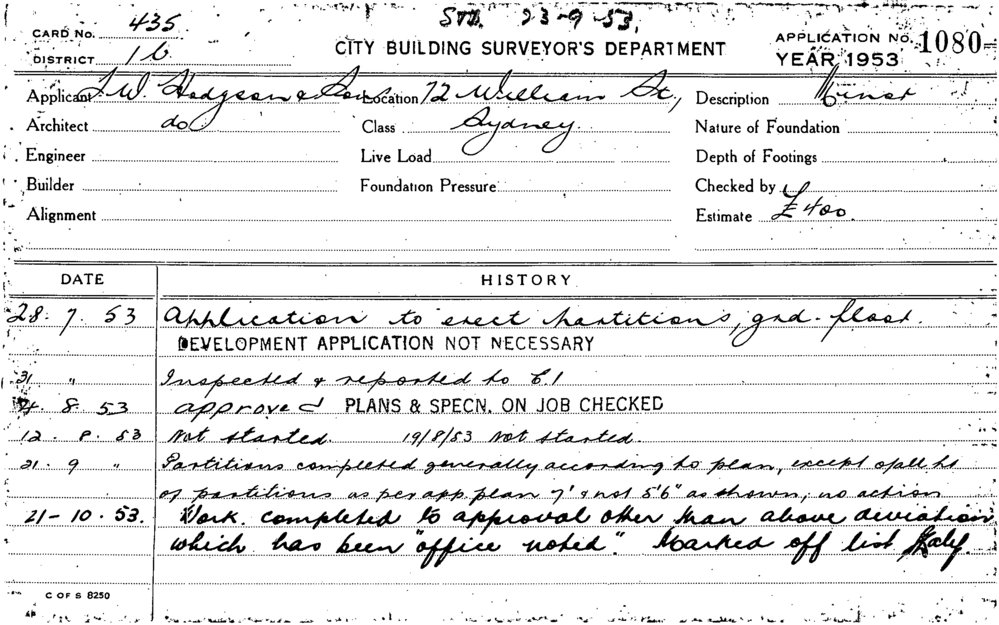 CARD No. 435
STD. 23-9-53.
DISTRICT 16
CITY BUILDING SURVEYOR'S DEPARTMENT
APPLICATION No. 1080
YEAR 1953
Applicant F.W. Hodgson & Son Location 72 William St., Description Minor
Architect do Class Sydney. Nature of Foundation
Engineer Live Load Depth of Footings
Builder Foundation Pressure Checked by
Alignment Estimate £400.
DATE HISTORY
28. 7. 53 Application to erect partitions, grd. floor.
DEVELOPMENT APPLICATION NOT NECESSARY
31 " Inspected & reported to C.I
4. 8. 53 approved PLANS & SPECN. ON JOB CHECKED
12. 8. 53 Not started. 19/8/53 Not started.
21. 9 " Partitions completed generally according to plan, except o/all ht
of partitions as per app. plan 7' & not 5'6" as shown, no action
21-10-53. Work completed to approval other than above deviation
which has been "office noted". Marked off list
C OF S 8250